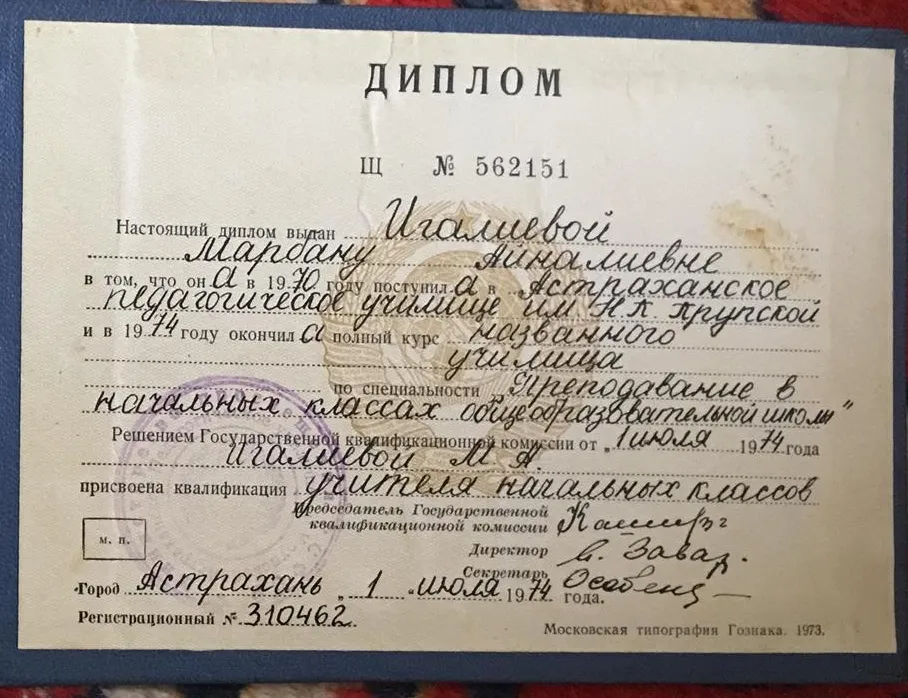 ДИПЛОМ
Щ № 562151
Настоящий диплом выдан Игалиевой
Марбану Айналиевне
в том, что он а в 1970 году поступил а в Астраханское
педагогическое училище им Н.К. Крупской
и в 1974 году окончил а полный курс названного
училища
по специальности „Преподавание в
начальных классах общеобразовательной школы"
Решением Государственной квалификационной комиссии от „1 июля 1974 года
Игалиевой М. А.
присвоена квалификация учителя начальных классов
Председатель Государственной
квалификационной комиссии
м. п.
Директор
Секретарь
Город Астрахань „ 1 " июля 1974 года.
Регистрационный № 310462.
Московская типография Гознака. 1973.